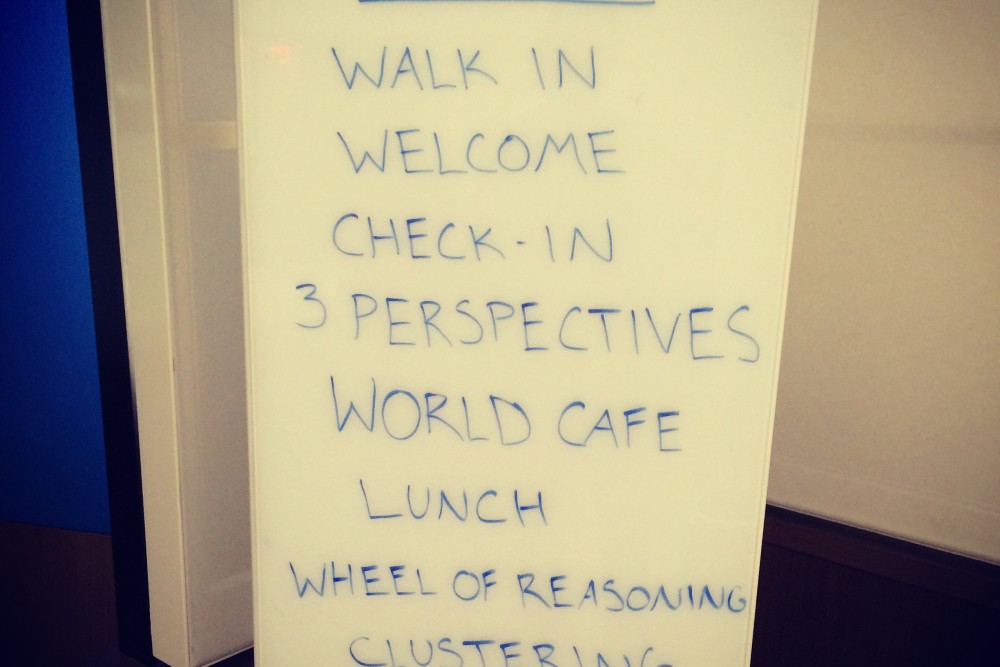 WALK IN
WELCOME
CHECK-IN
3 PERSPECTIVES
WORLD CAFE
LUNCH
WHEEL OF REASONING
CLUSTERING